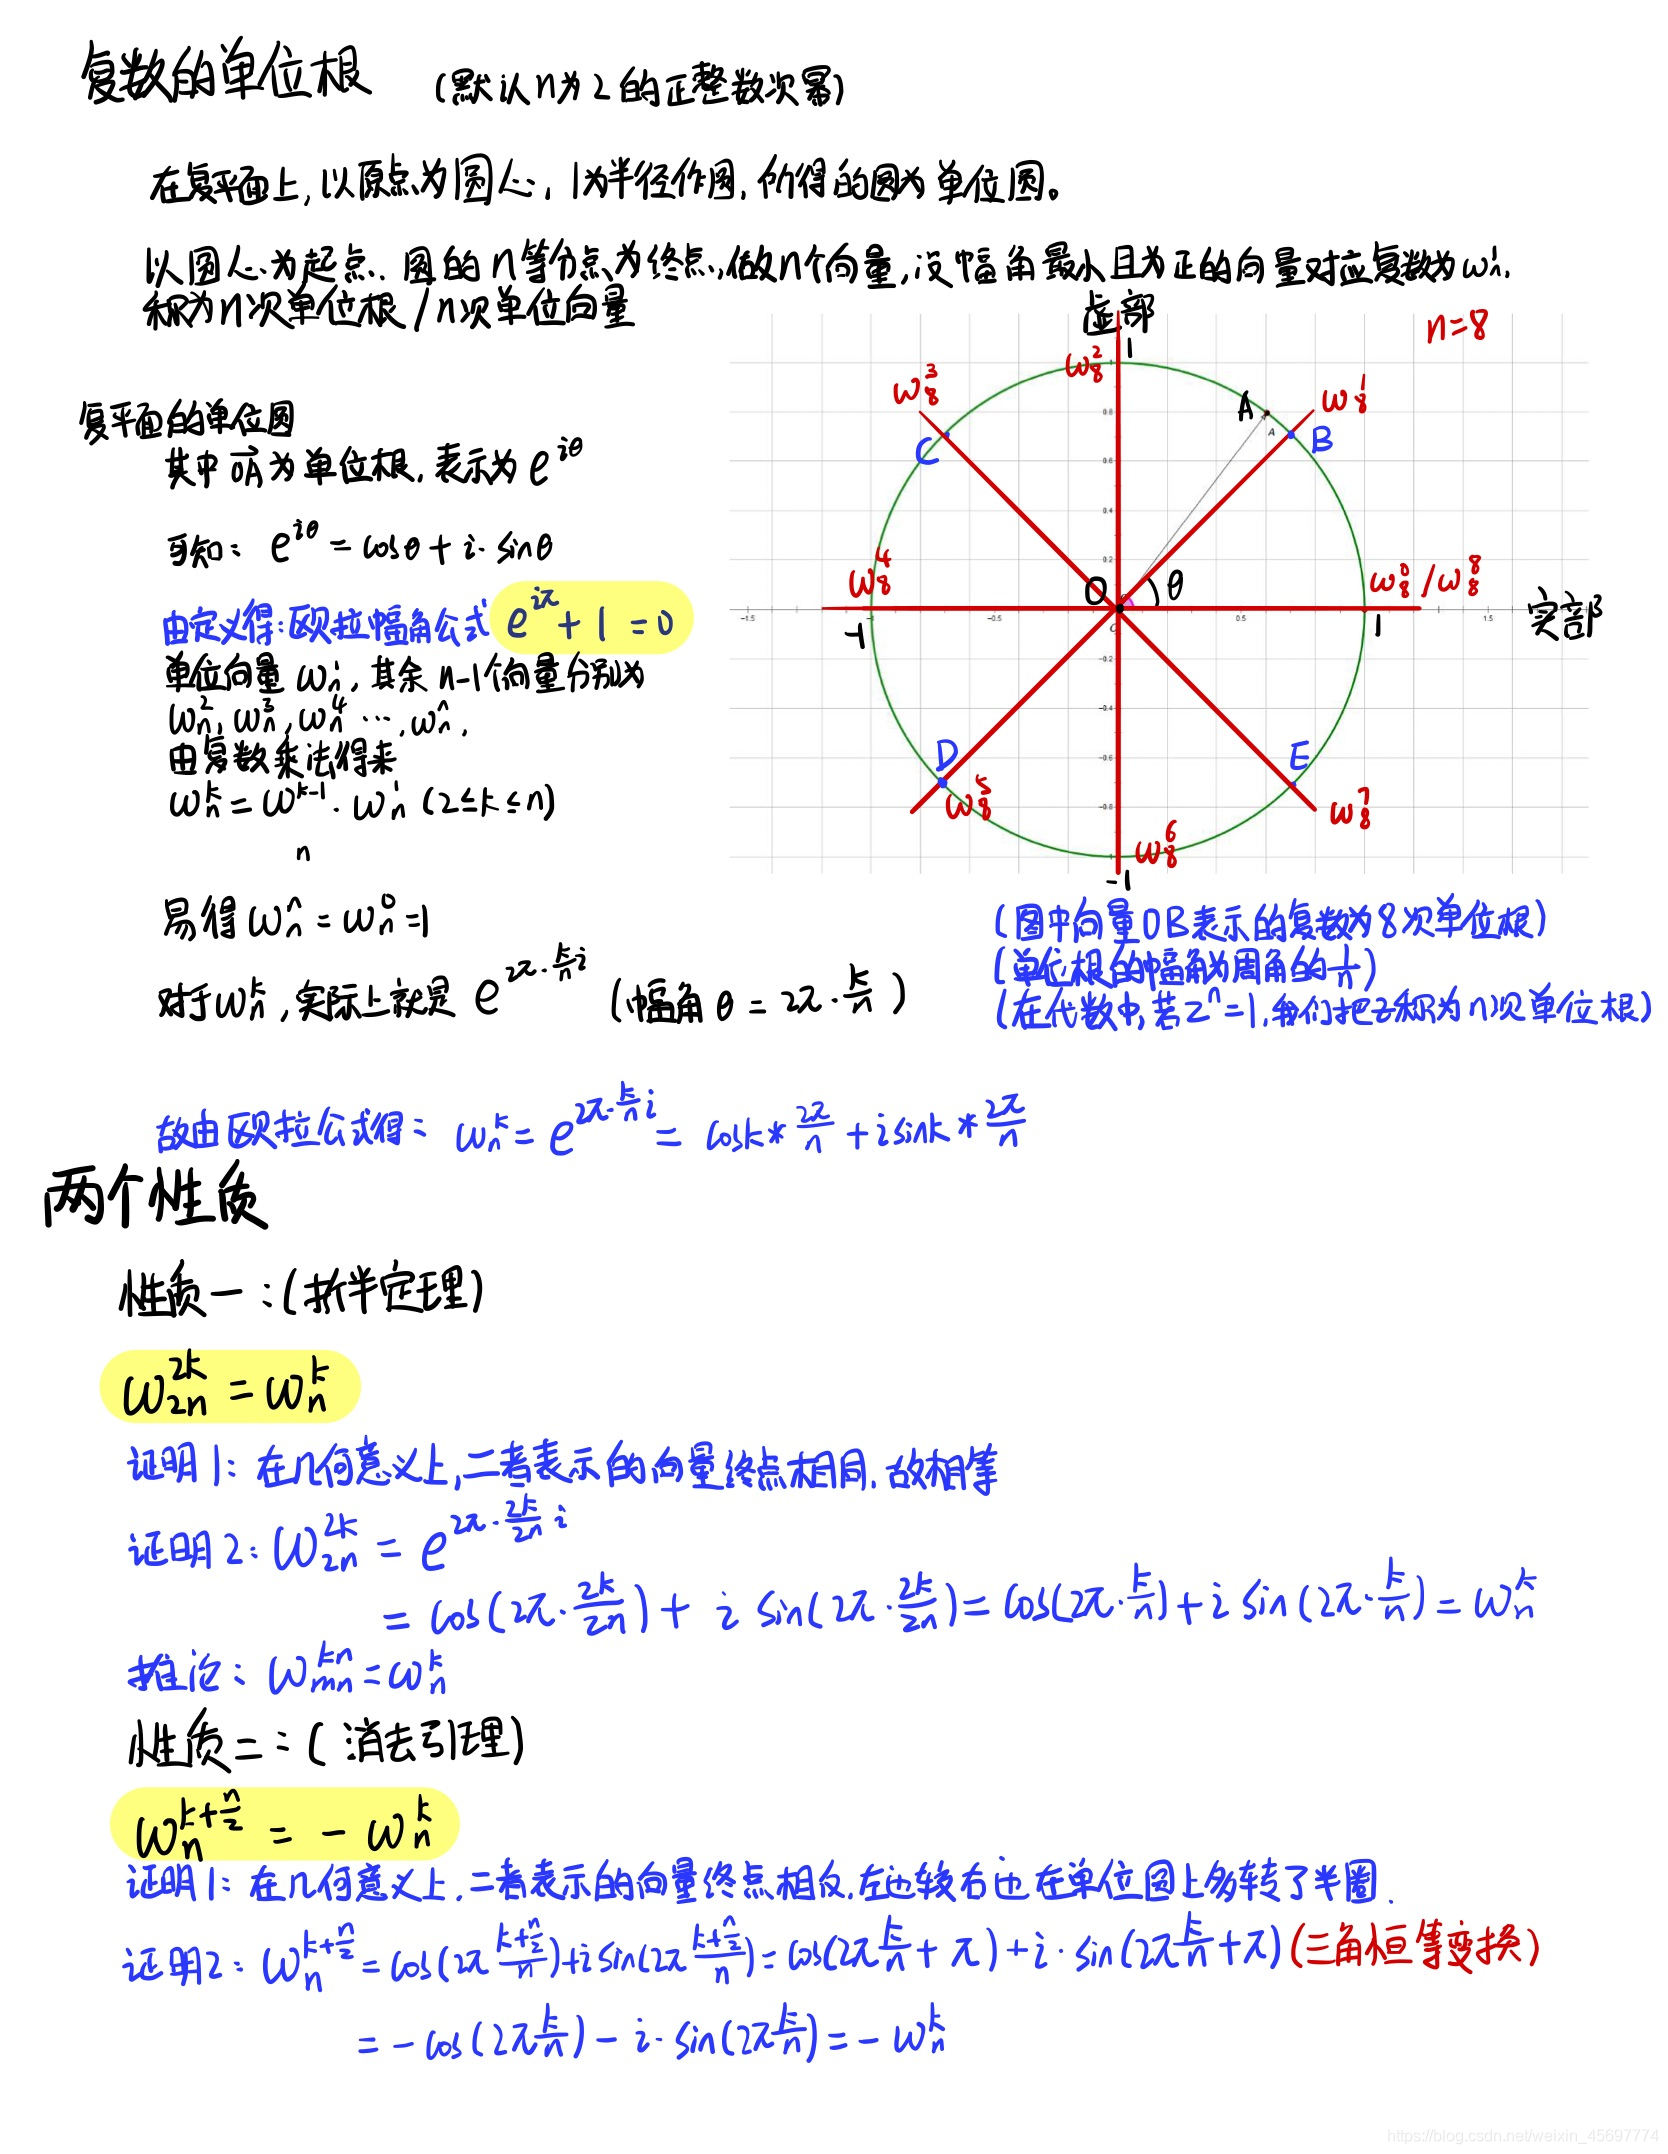 复数的单位根 (默认n为2的正整数次幂)
在复平面上,以原点为圆心,1为半径作圆,所得的圆为单位圆。
以圆心为起点,圆的n等分点为终点,做n个向量,设幅角最小且为正的向量对应复数为ω_n^1,
称为n次单位根/n次单位向量
复平面的单位圆
其中OA为单位根,表示为e^{iθ}
可知: e^{iθ} = cosθ + i·sinθ
由定义得:欧拉幅角公式 e^{iπ}+1=0
单位向量ω_n^1,其余n-1个向量分别为
ω_n^2,ω_n^3,ω_n^4…,ω_n^n,
由复数乘法得来
ω_n^k = ω^{k-1}·ω_n^1 (2≤k≤n)
n
易得ω_n^n=ω_n^0=1
对于ω_n^k,实际上就是 e^{2π·\frac{k}{n}i} (幅角θ=2π·\frac{k}{n})
n=8
虚部
1
ω_8^2
ω_8^3
A
ω_8^1
C
A
B
0.8
0.6
0.4
0.2
ω_8^4
O
θ
ω_8^0/ω_8^8
实部
-1.5
-1
-0.5
0.5
1
1.5
-0.2
-0.4
-0.6
-0.8
D
E
ω_8^5
ω_8^7
ω_8^6
-1
(图中向量OB表示的复数为8次单位根)
(单位根的幅角为周角的\frac{1}{n})
(在代数中,若z^n=1,我们把z称为n次单位根)
故由欧拉公式得: ω_n^k = e^{2π·\frac{k}{n}i} = cosk*\frac{2π}{n}+isink*\frac{2π}{n}
两个性质
性质一:(折半定理)
ω_{2n}^{2k} = ω_n^k
证明1: 在几何意义上,二者表示的向量终点相同,故相等
证明2: ω_{2n}^{2k} = e^{2π·\frac{2k}{2n}i}
= cos(2π·\frac{2k}{2n})+ i sin(2π·\frac{2k}{2n})= cos(2π·\frac{k}{n})+i sin(2π·\frac{k}{n})= ω_n^k
推论: ω_{mn}^{kn}=ω_n^k
性质二:(消去引理)
ω_n^{k+\frac{n}{2}} = -ω_n^k
证明1: 在几何意义上,二者表示的向量终点相反,左边较右边在单位圆上多转了半圈.
证明2: ω_n^{k+\frac{n}{2}} = cos(2π\frac{k+\frac{n}{2}}{n})+i sin(2π\frac{k+\frac{n}{2}}{n})= cos(2π\frac{k}{n}+π)+i·sin(2π\frac{k}{n}+π)(三角恒等变换)
= -cos(2π\frac{k}{n})-i·sin(2π\frac{k}{n})= -ω_n^k
https://blog.csdn.net/weixin_45697774